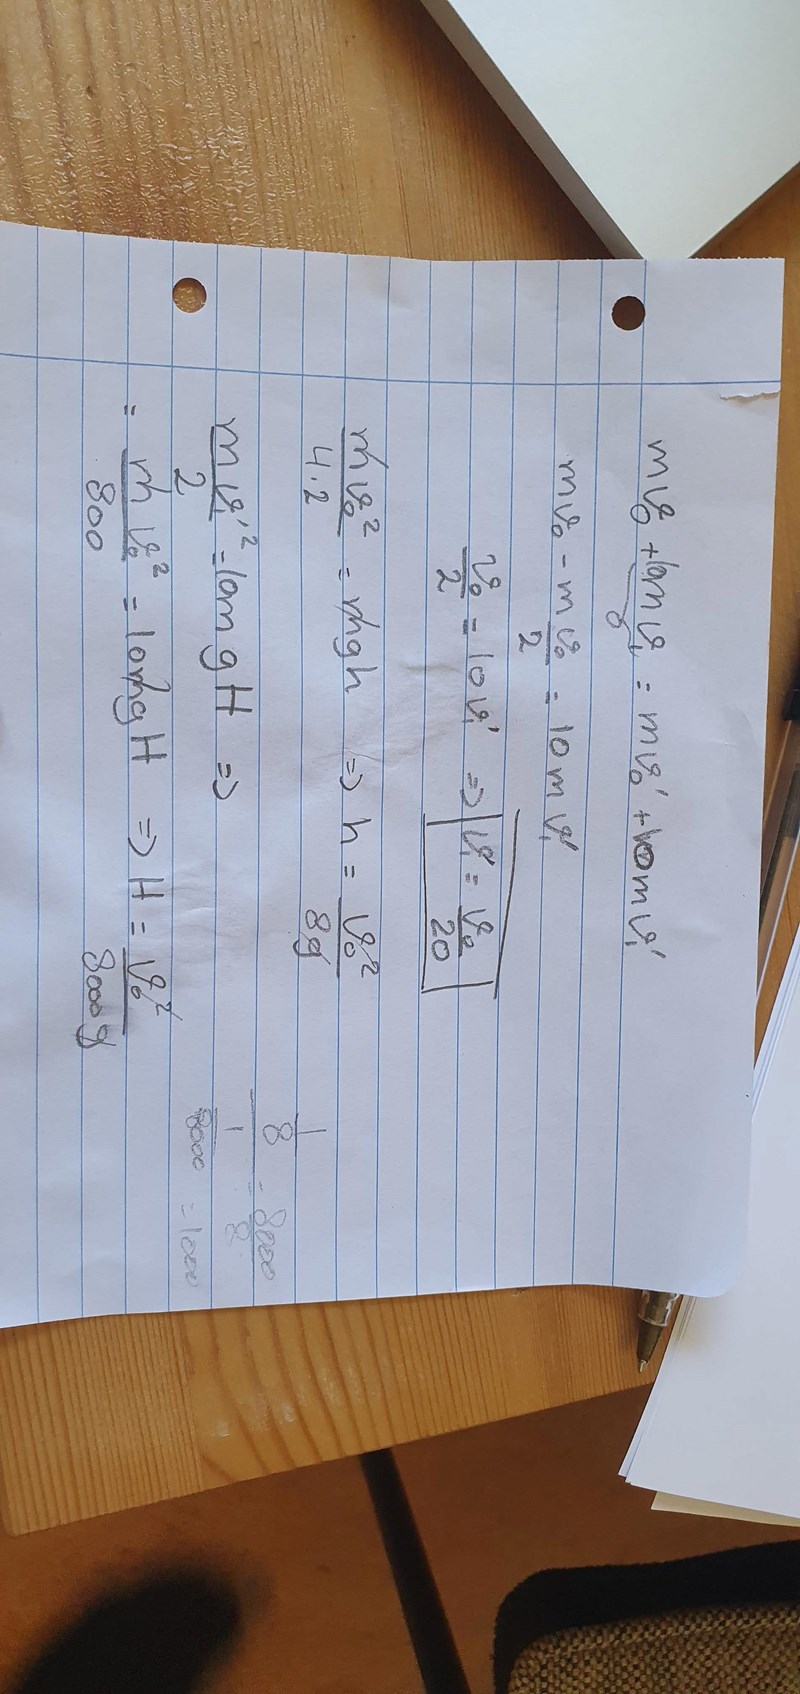 mv₀ + 10mv₁ = mv₀' + 10mv₁'
0
mv₀ - m v₀/2 = 10mv₁'
v₀/2 = 10v₁' => v₁' = v₀/20
mv₀²/4·2 = mgh => h = v₀²/8g
mv₁'²/2 = 10mgH =>
= mv₀²/800 = 10mgH => H = v₀²/8000g
1/8
1/8000 = 8000/8 = 1000